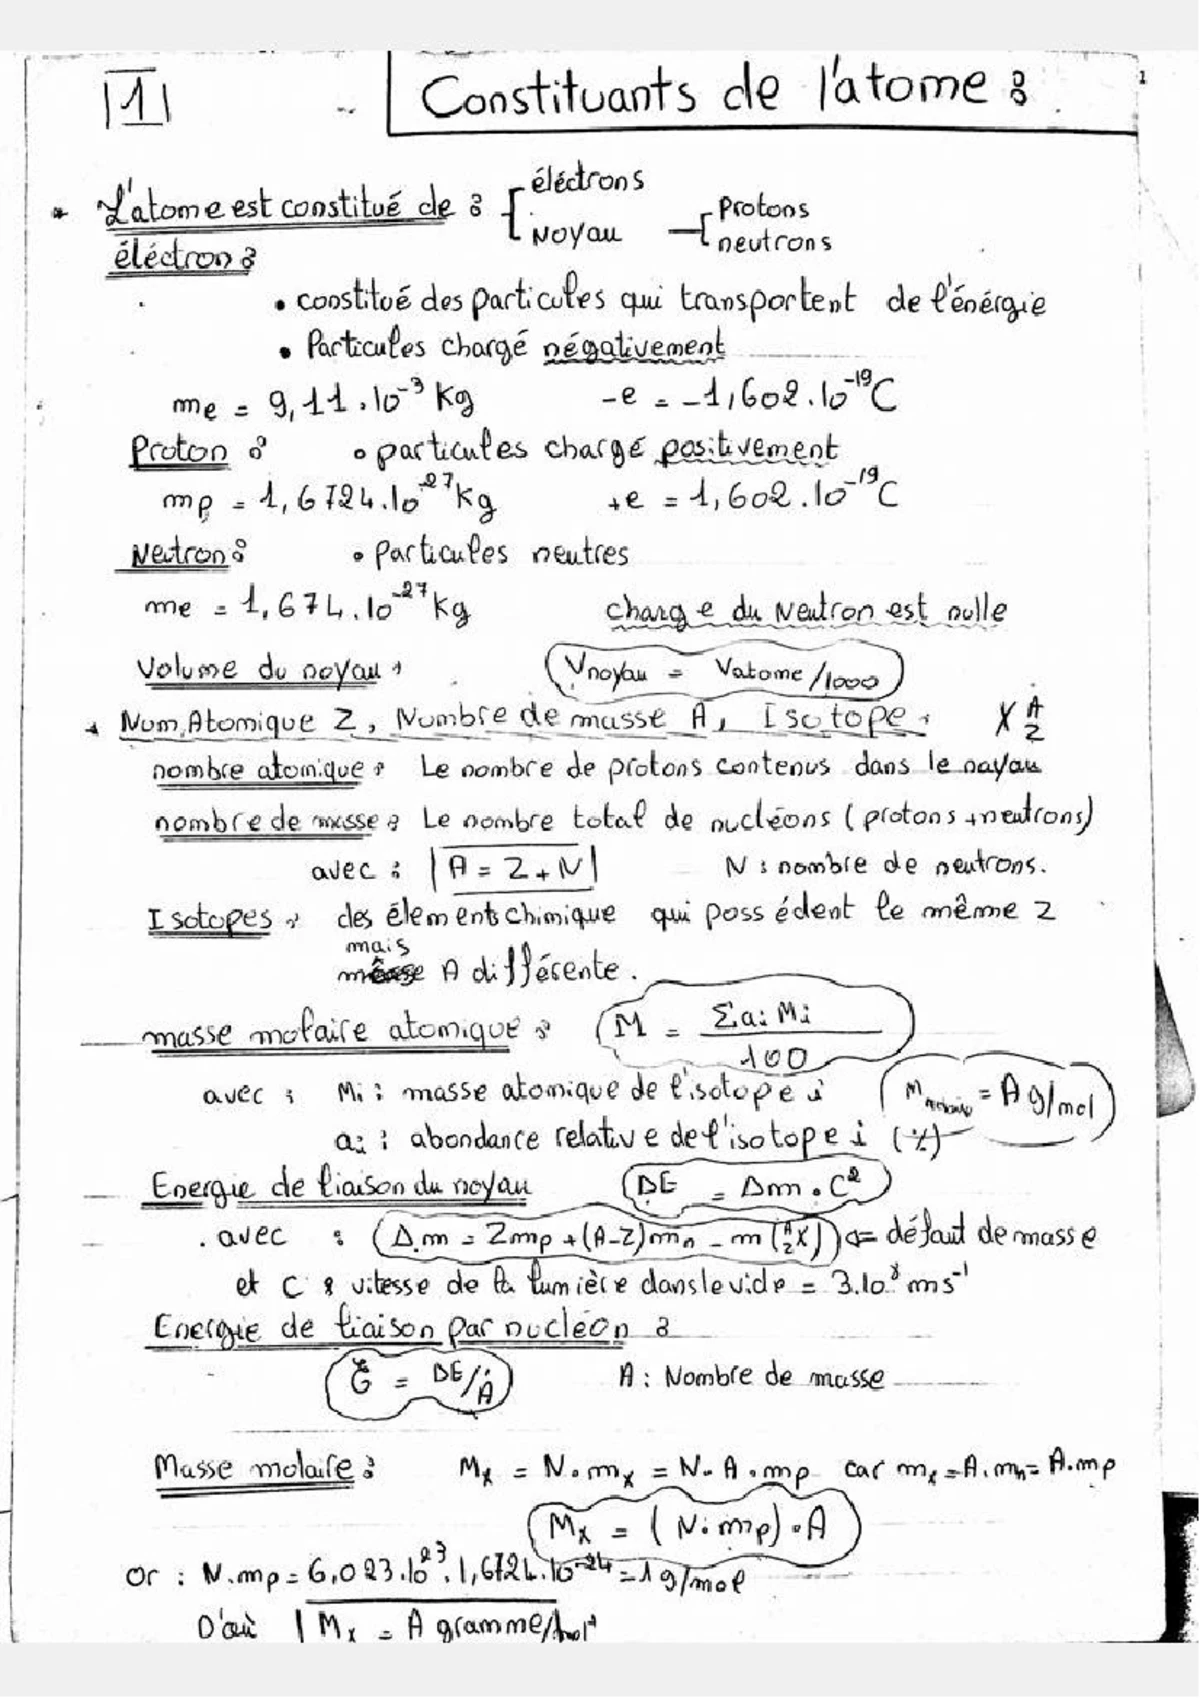 1
1
Constituants de l'atome :
* L'atome est constitué de : { éléctrons
Noyau { Protons
neutrons
éléctron :
• constitué des particules qui transportent de l'énérgie
• Particules chargé négativement
me = 9,11.10⁻³ Kg -e = -1,602.10⁻¹⁹C
Proton : • particules chargé positivement
mp = 1,6724.10⁻²⁷ kg +e = 1,602.10⁻¹⁹C
Neutron : • Particules neutres
me = 1,674.10⁻²⁷ kg charge du Neutron est nulle
Volume du noyau : Vnoyau = Vatome/1000
* Num.Atomique Z, Nombre de masse A, Isotope : X A Z
nombre atomique : Le nombre de protons contenus dans le noyau
nombre de masse : Le nombre total de nucléons (protons + neutrons)
avec : |A = Z + N| N : nombre de neutrons.
Isotopes : des élements chimique qui possédent le même Z
mais
A différente.
masse molaire atomique : M = Σai Mi / 100
avec : Mi : masse atomique de l'isotope i M = A g/mol
ai : abondance relative de l'isotope i (%)
Energie de liaison du noyau DE = Δm . C²
. avec : Δm = Zmp + (A-Z)mn - m(ᴬ_Z X) ⇐ défaut de masse
et C : vitesse de la lumière dans le vide = 3.10⁸ ms⁻¹
Energie de liaison par nucléon :
Ē = DE/A A : Nombre de masse
Masse molaire : Mx = N.mx = N.A.mp car mx = A.mn = A.mp
Mx = (N.mp).A
Or : N.mp = 6,023.10²³.1,6724.10⁻²⁴ = 1g/mol
D'où | Mx = A gramme/mol